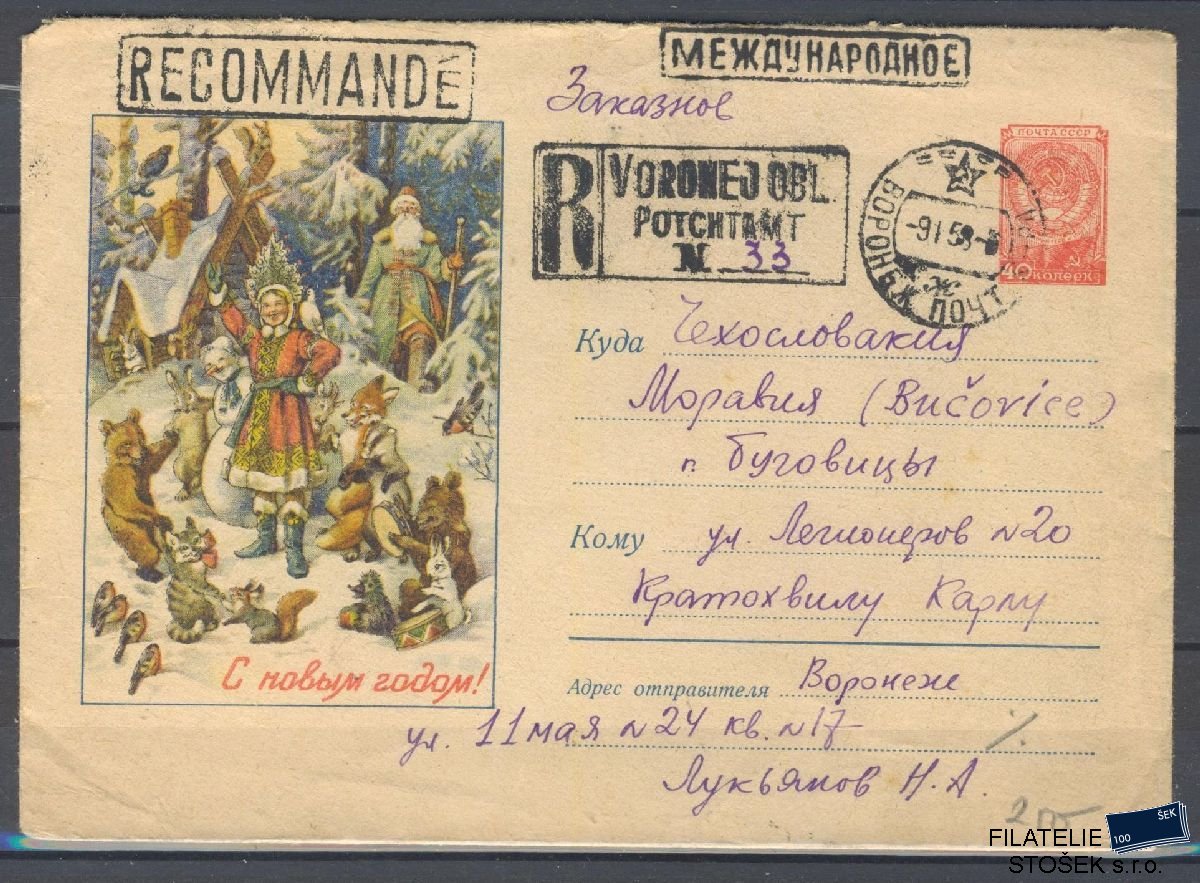 RECOMMANDÉ
МЕЖДУНАРОДНОЕ
Заказное
R VORONEJ OBL.
POTCHTAMT
N 33
ВОРОНЕЖ ПОЧТ
-9 1 58-
ПОЧТА СССР
40 копеек
Куда Чехословакия
Моравия (Bučovice)
п. Буговицы
Кому ул. Легионеров N20
Кратохвилу Карлу
С новым годом!
Адрес отправителя Воронеж
ул. 11 мая N24 кв. N17
Лукьянов Н. А.
FILATELIE
STOŠEK s.r.o.
100 ŠEK